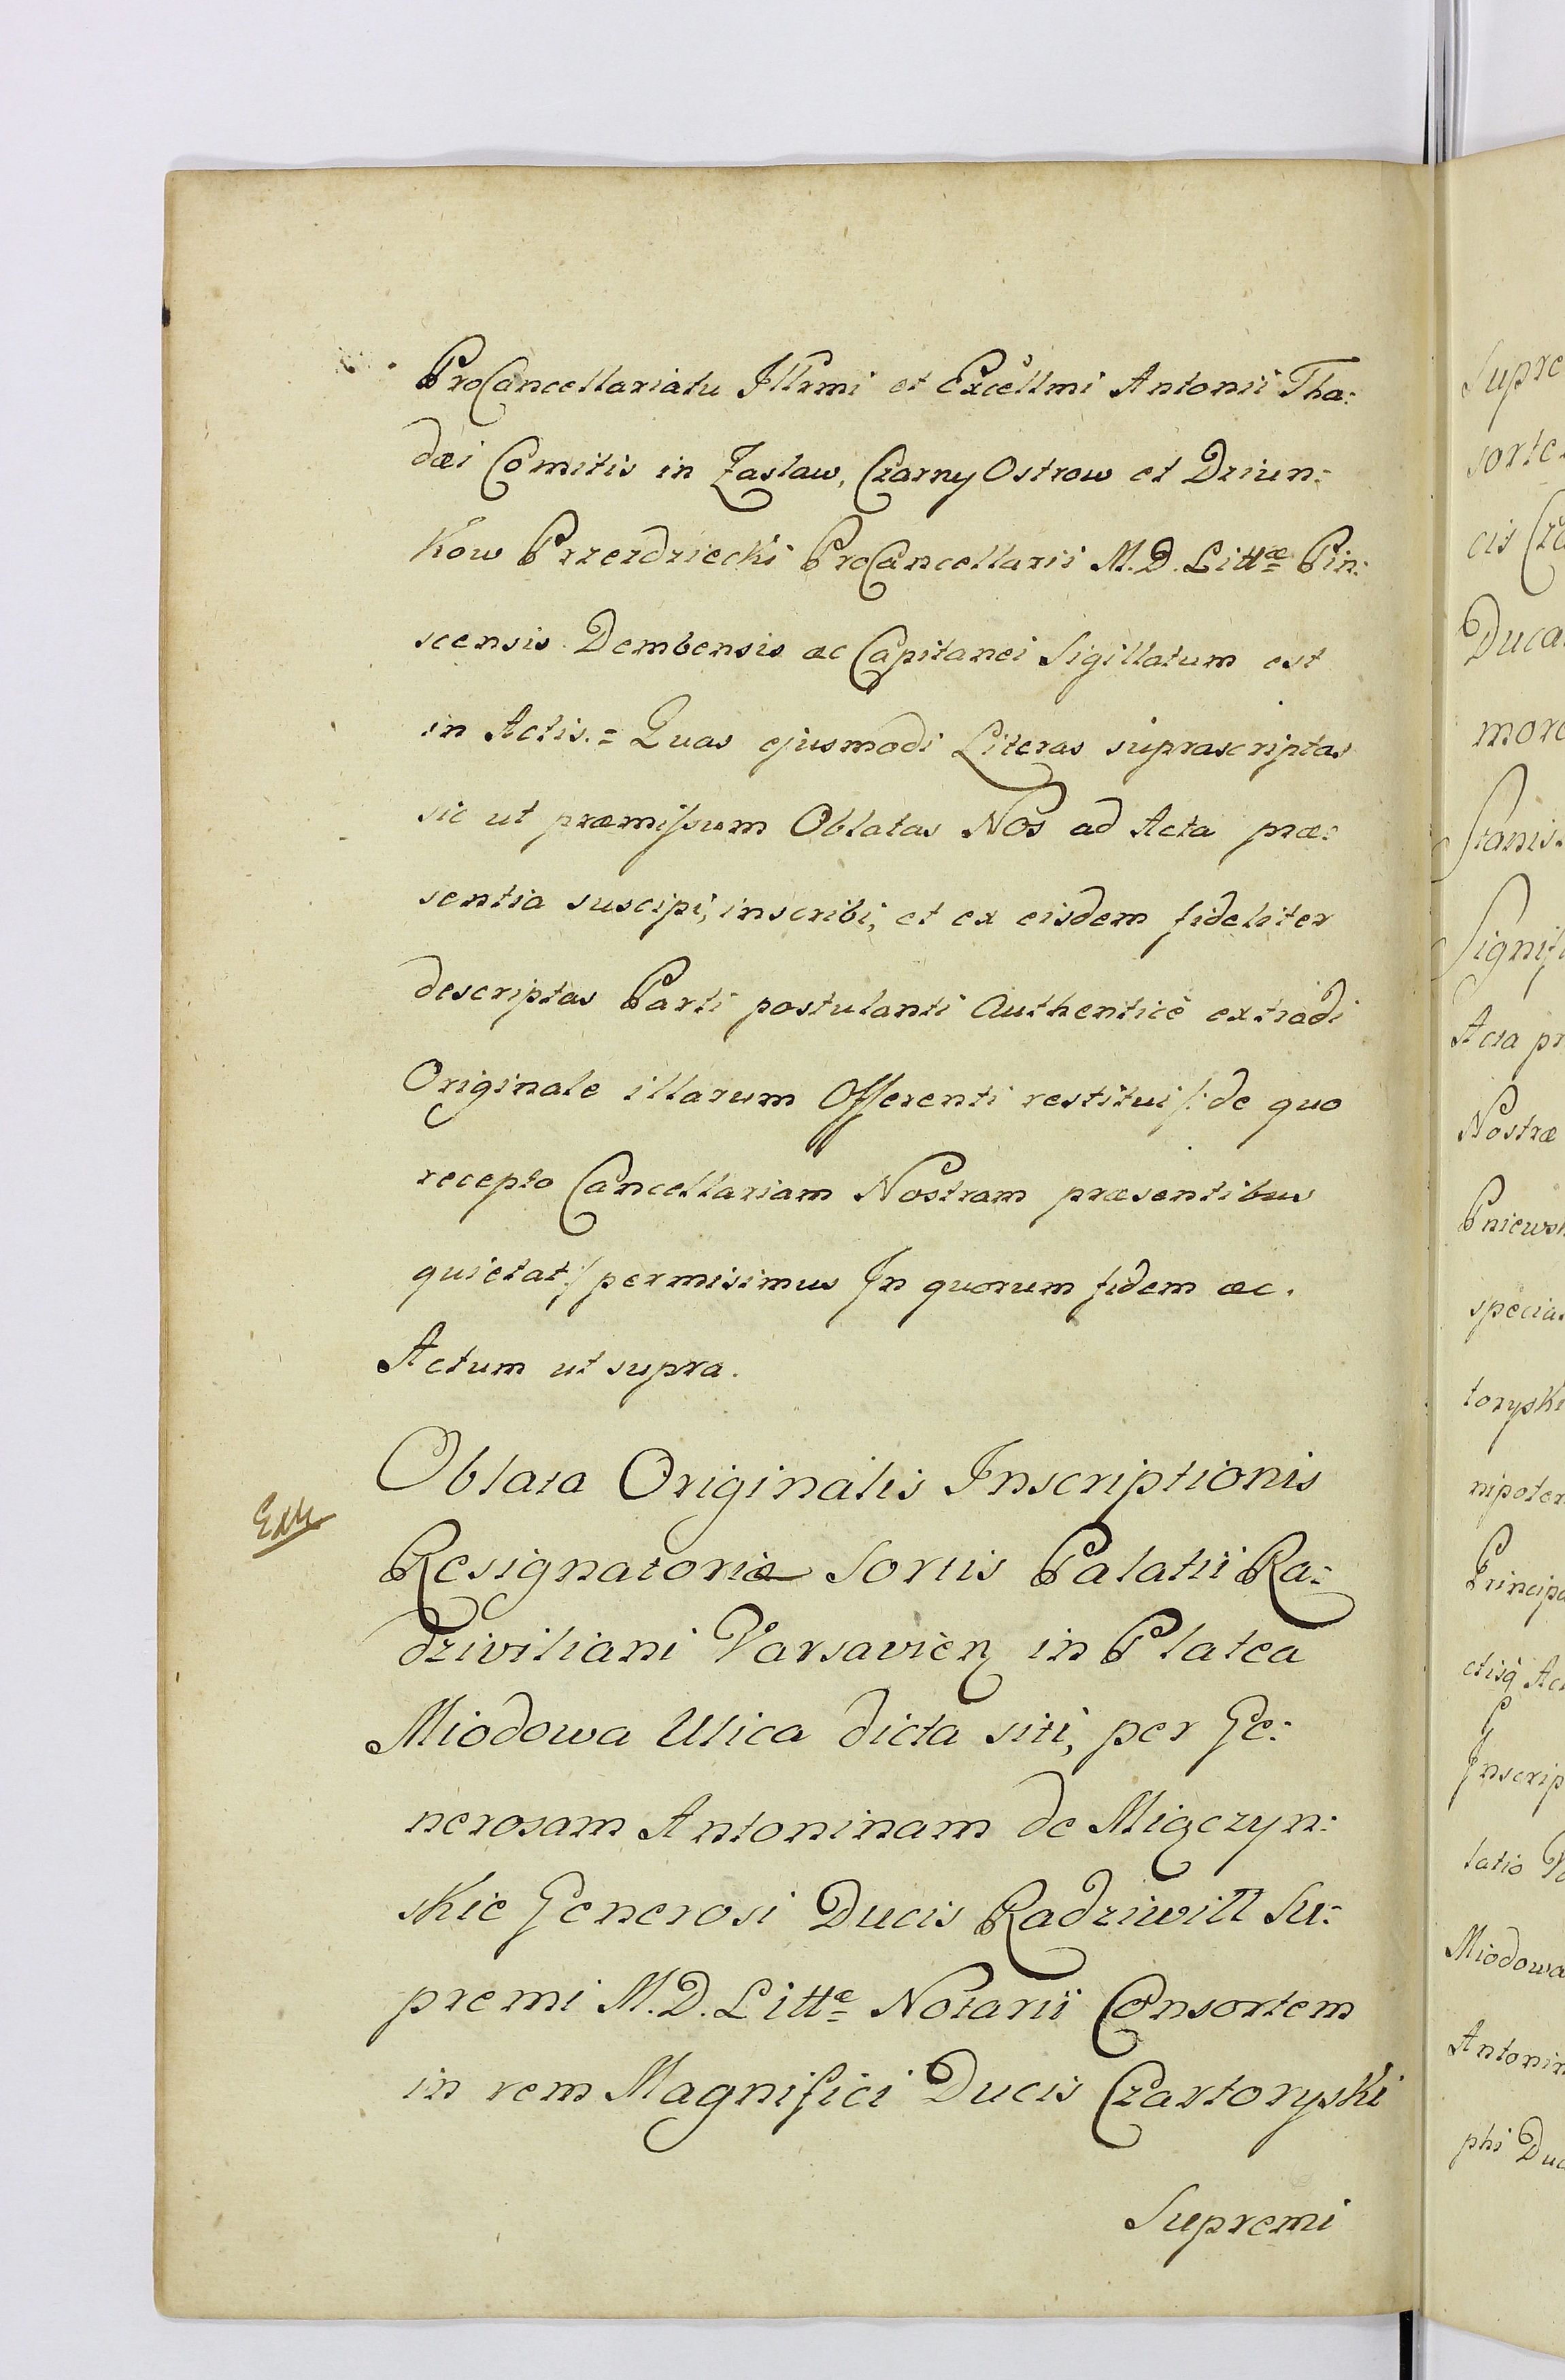 ProCancellariatu Illrmi et Excellmi Antonii Tha:
dæi Comitis in Zaslaw, Czarny Ostrow et Dziun:
kow Przezdziecki ProCancellarii M. D. Littæ Pin:
scensis Dembensis ac Capitanei Sigillatum est
in Actis. = Quas ejusmodi Literas suprascriptas
sic ut præmissum Oblatas Nos ad Acta præ:
sentia suscipi, inscribi, et ex eisdem fideliter
descriptas Parti postulanti Authenticè extradi
Originale illarum Offerenti restitui /: de quo
recepto Cancellariam Nostram præsentibus
quietat :/ permisimus In quorum fidem ac.
Actum ut supra.
Oblata Originalis Inscriptionis
Resignatoriæ Sortis Palatii Ra:
dziviliani Varsavień in Platea
Miodowa Ulica dicta siti, per Ge:
nerosam Antoninam de Miączyn:
skie Generosi Ducis Radziwill Su:
premi M. D. Litte Notarii Consortem
in rem Magnifici Ducis Czartoryski
Supremi
Supre
sorte
cis Cza
Duca
more
Stanis
Signifi
Acta pr
Nostræ
Pniewsk
specia
toryski
nipoten
Principa
ctisq Ac
Inscrip
latio Va
Miodowa
Antonin
phi Duc